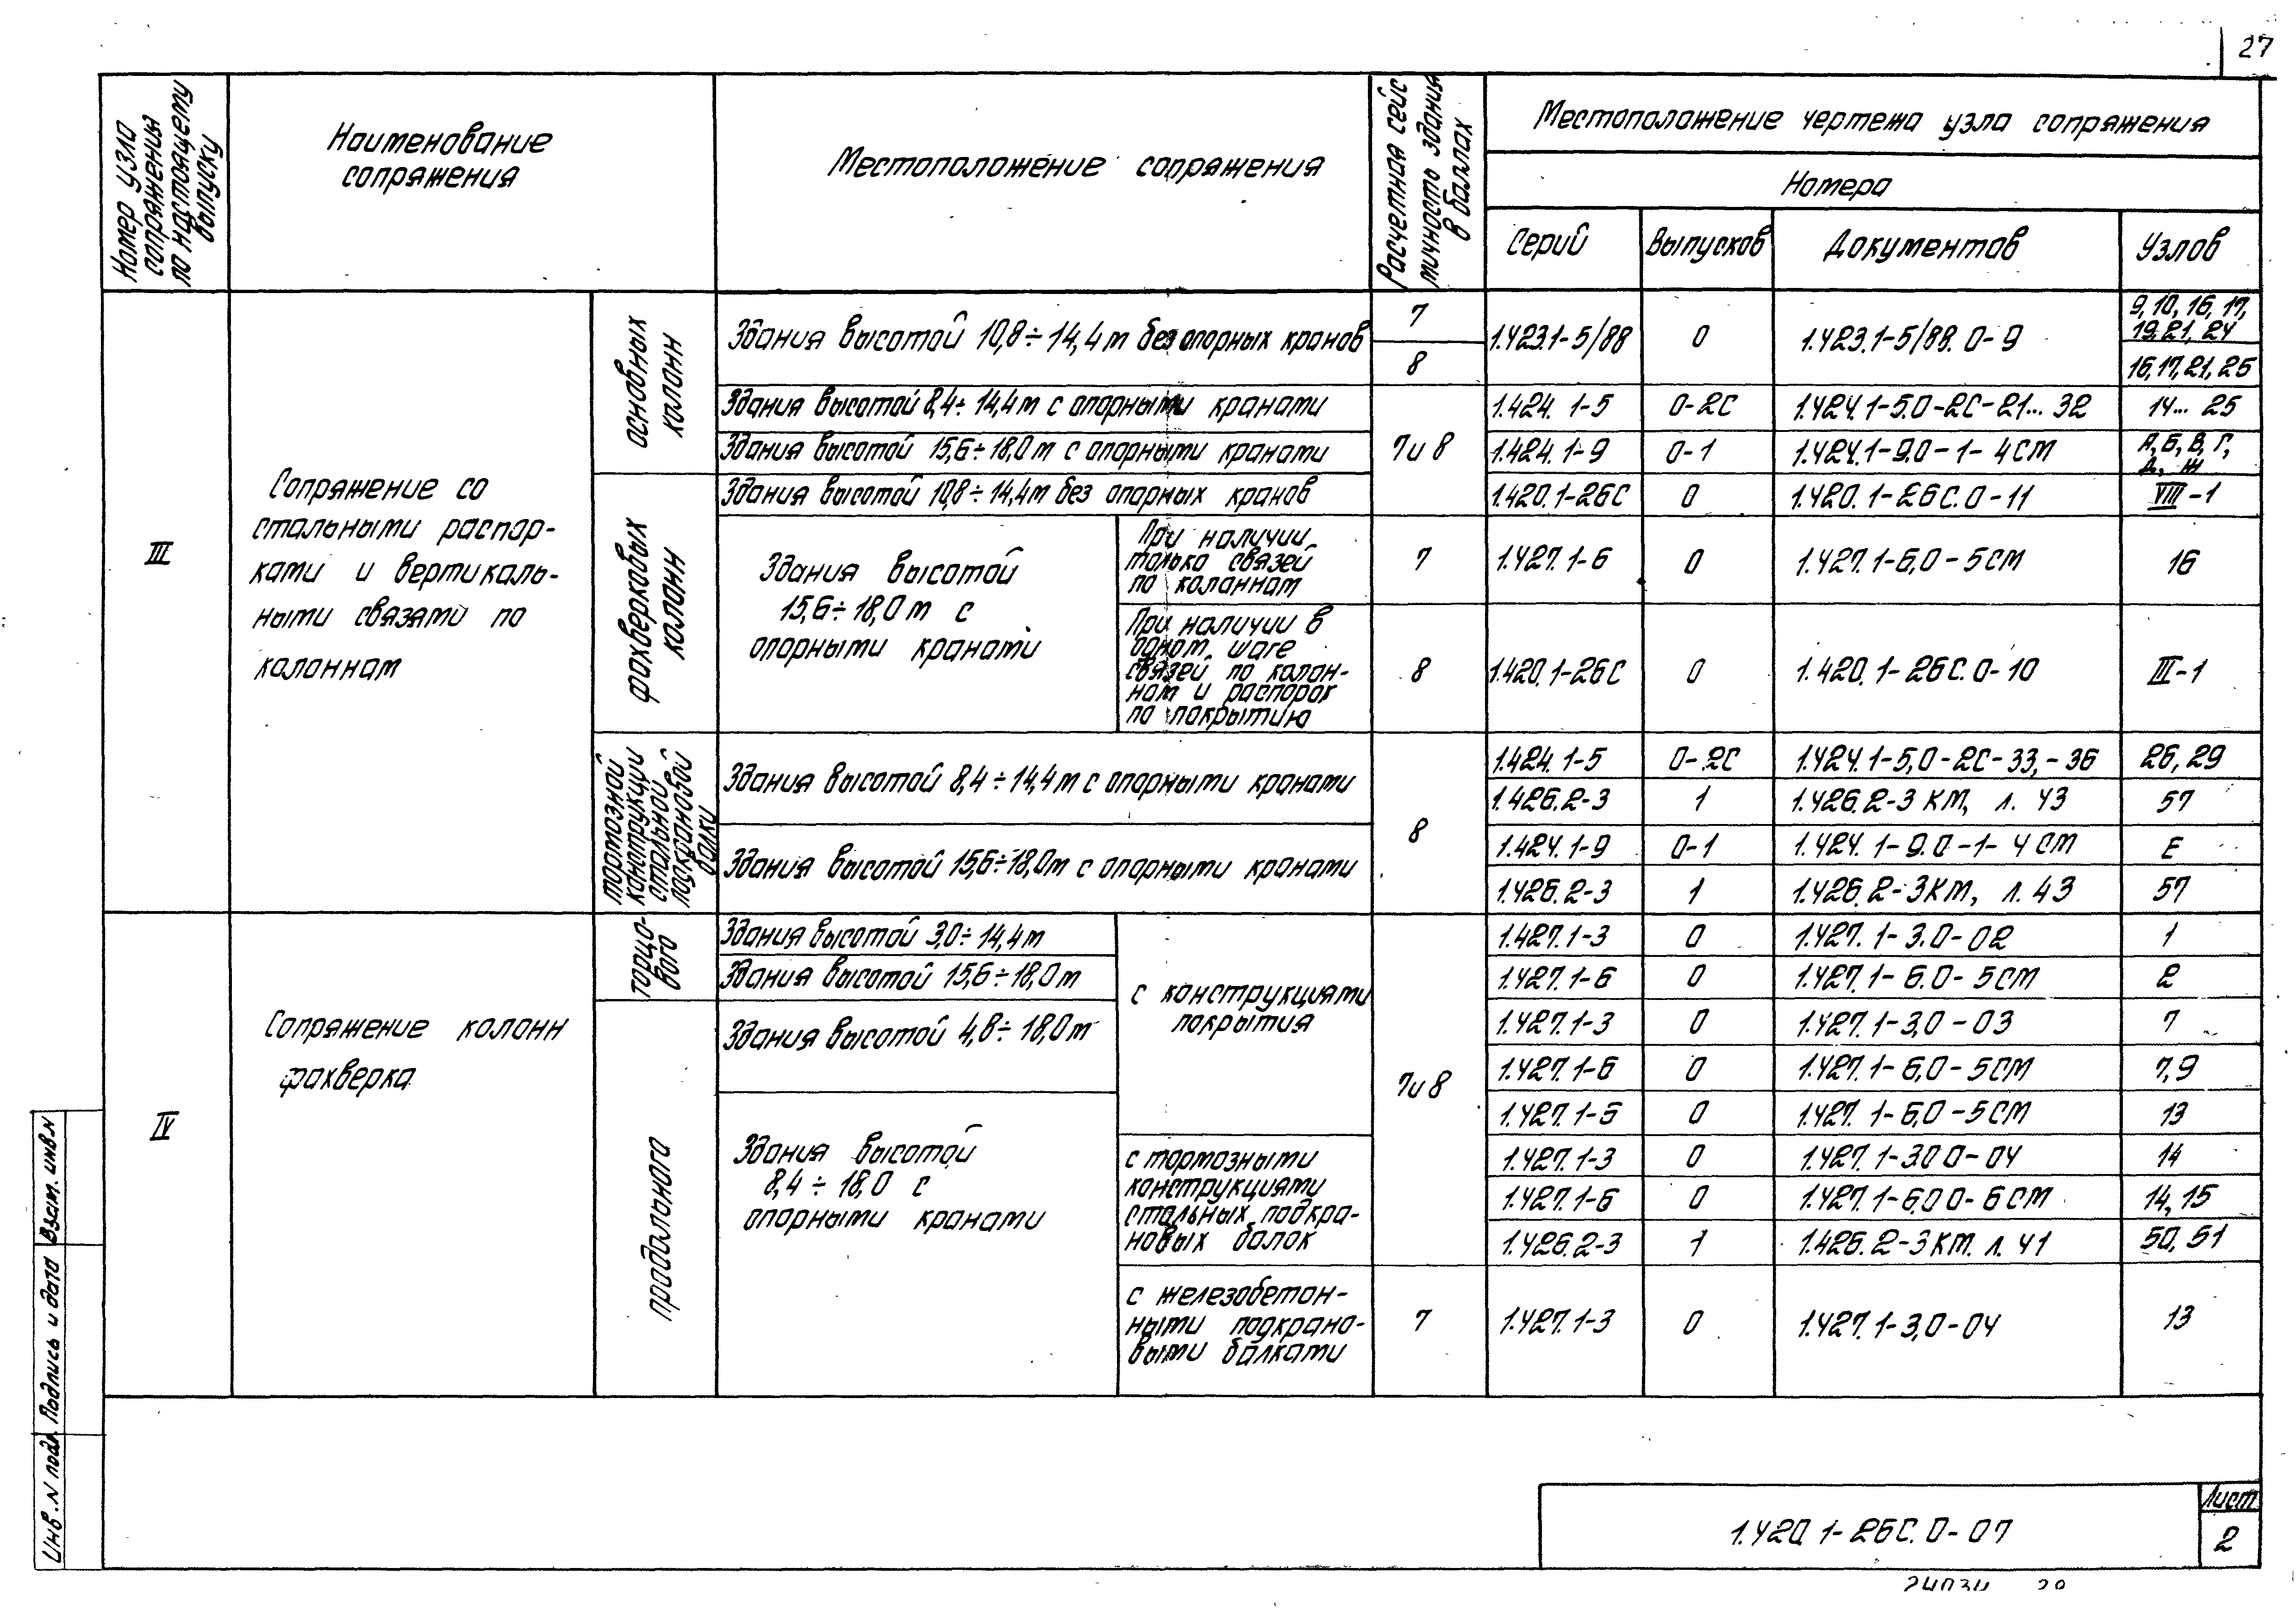 27
Номер узла
сопряжения
по настоящему
выпуску
Наименование
сопряжения
Местоположение сопряжения
Расчетная сейс
мичность здания
в баллах
Местоположение чертежа узла сопряжения
Номера
Серий
Выпусков
Документов
Узлов
III
Сопряжение со
стальными распор-
ками и вертикаль-
ными связями по
колоннам
основных
колонн
Здания высотой 10,8÷14,4м без опорных кранов
7
8
1.423.1-5/88
0
1.423.1-5/88.0-9
9,10,16,17,
19,21,24
16,17,21,25
Здания высотой 8,4÷14,4м с опорными кранами
7и8
1.424.1-5
0-2С
1.424.1-5.0-2С-21...32
14...25
Здания высотой 15,6÷18,0м с опорными кранами
1.424.1-9
0-1
1.424.1-9.0-1-4СМ
А,Б,В,Г,
Д, Ж
фахверковых
колонн
Здания высотой 10,8÷14,4м без опорных кранов
1.420.1-26С
0
1.420.1-26С.0-11
VIII-1
Здания высотой
15,6÷18,0м с
опорными кранами
При наличии
только связей
по колоннам
7
1.427.1-6
0
1.427.1-6,0-5СМ
16
При наличии в
одном шаге
связей по колон-
нам и распорок
по покрытию
8
1.420.1-26С
0
1.420.1-26С.0-10
III-1
тормозной
конструкции
стальной
подкрановой
балки
Здания высотой 8,4÷14,4м с опорными кранами
8
1.424.1-5
0-2С
1.424.1-5,0-2С-33,-36
26,29
1.426.2-3
1
1.426.2-3 КМ, л. 43
57
Здания высотой 15,6÷18,0м с опорными кранами
1.424.1-9
0-1
1.424.1-9.0-1-4СМ
Е
1.426.2-3
1
1.426.2-3КМ, л.43
57
IV
Сопряжение колонн
фахверка
торцо-
вого
Здания высотой 3,0÷14,4м
с конструкциями
покрытия
7и8
1.427.1-3
0
1.427.1-3.0-02
1
Здания высотой 15,6÷18,0м
1.427.1-6
0
1.427.1-6.0-5СМ
2
продольного
Здания высотой 4,8÷18,0м
1.427.1-3
0
1.427.1-3,0-03
7
1.427.1-6
0
1.427.1-6,0-5СМ
7,9
Здания высотой
8,4÷18,0 с
опорными кранами
1.427.1-6
0
1.427.1-6,0-5СМ
13
с тормозными
конструкциями
стальных подкра-
новых балок
1.427.1-3
0
1.427.1-3.00-04
14
1.427.1-6
0
1.427.1-6.00-6СМ
14,15
1.426.2-3
1
1.426.2-3КМ. л.41
50,51
с железобетон-
ными подкрано-
выми балками
7
1.427.1-3
0
1.427.1-3,0-04
13
Инв.N подл.
Подпись и дата
Взам. инв.N
1.420.1-26С.0-07
Лист
2